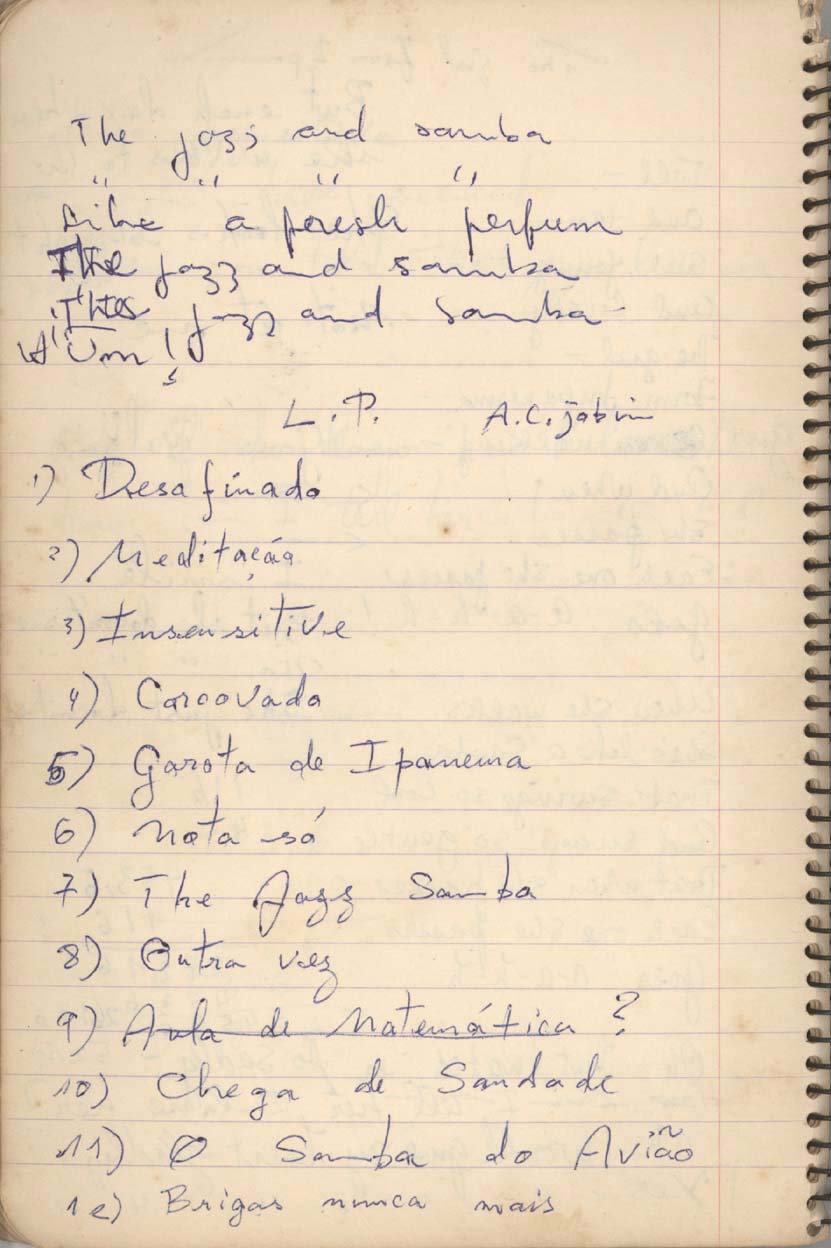 The jazz and samba
" " " "
Like a fresh perfum
The jazz and samba
This jazz and samba
A um!
L.P. A.C. jobim
1) Desafinado
2) Meditação
3) Insensitive
4) Corcovado
5) Garota de Ipanema
6) Nota só
7) The Jazz Samba
8) Outra vez
9) Aula de Matemática ?
10) Chega de Saudade
11) O Samba do Avião
12) Brigas nunca mais